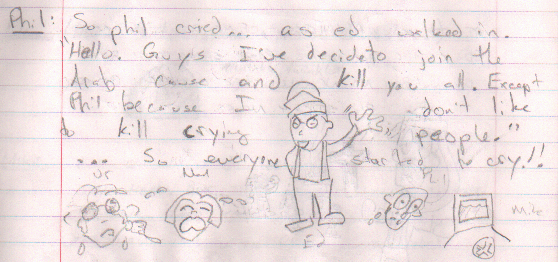 Phil: So phil cried... as ed walked in.
"Hello. Guys I've decideto join the
Arab cause and kill you all. Except
Phil because I don't like
to kill crying people."
... So everyone started to cry!!
Phil
Mike